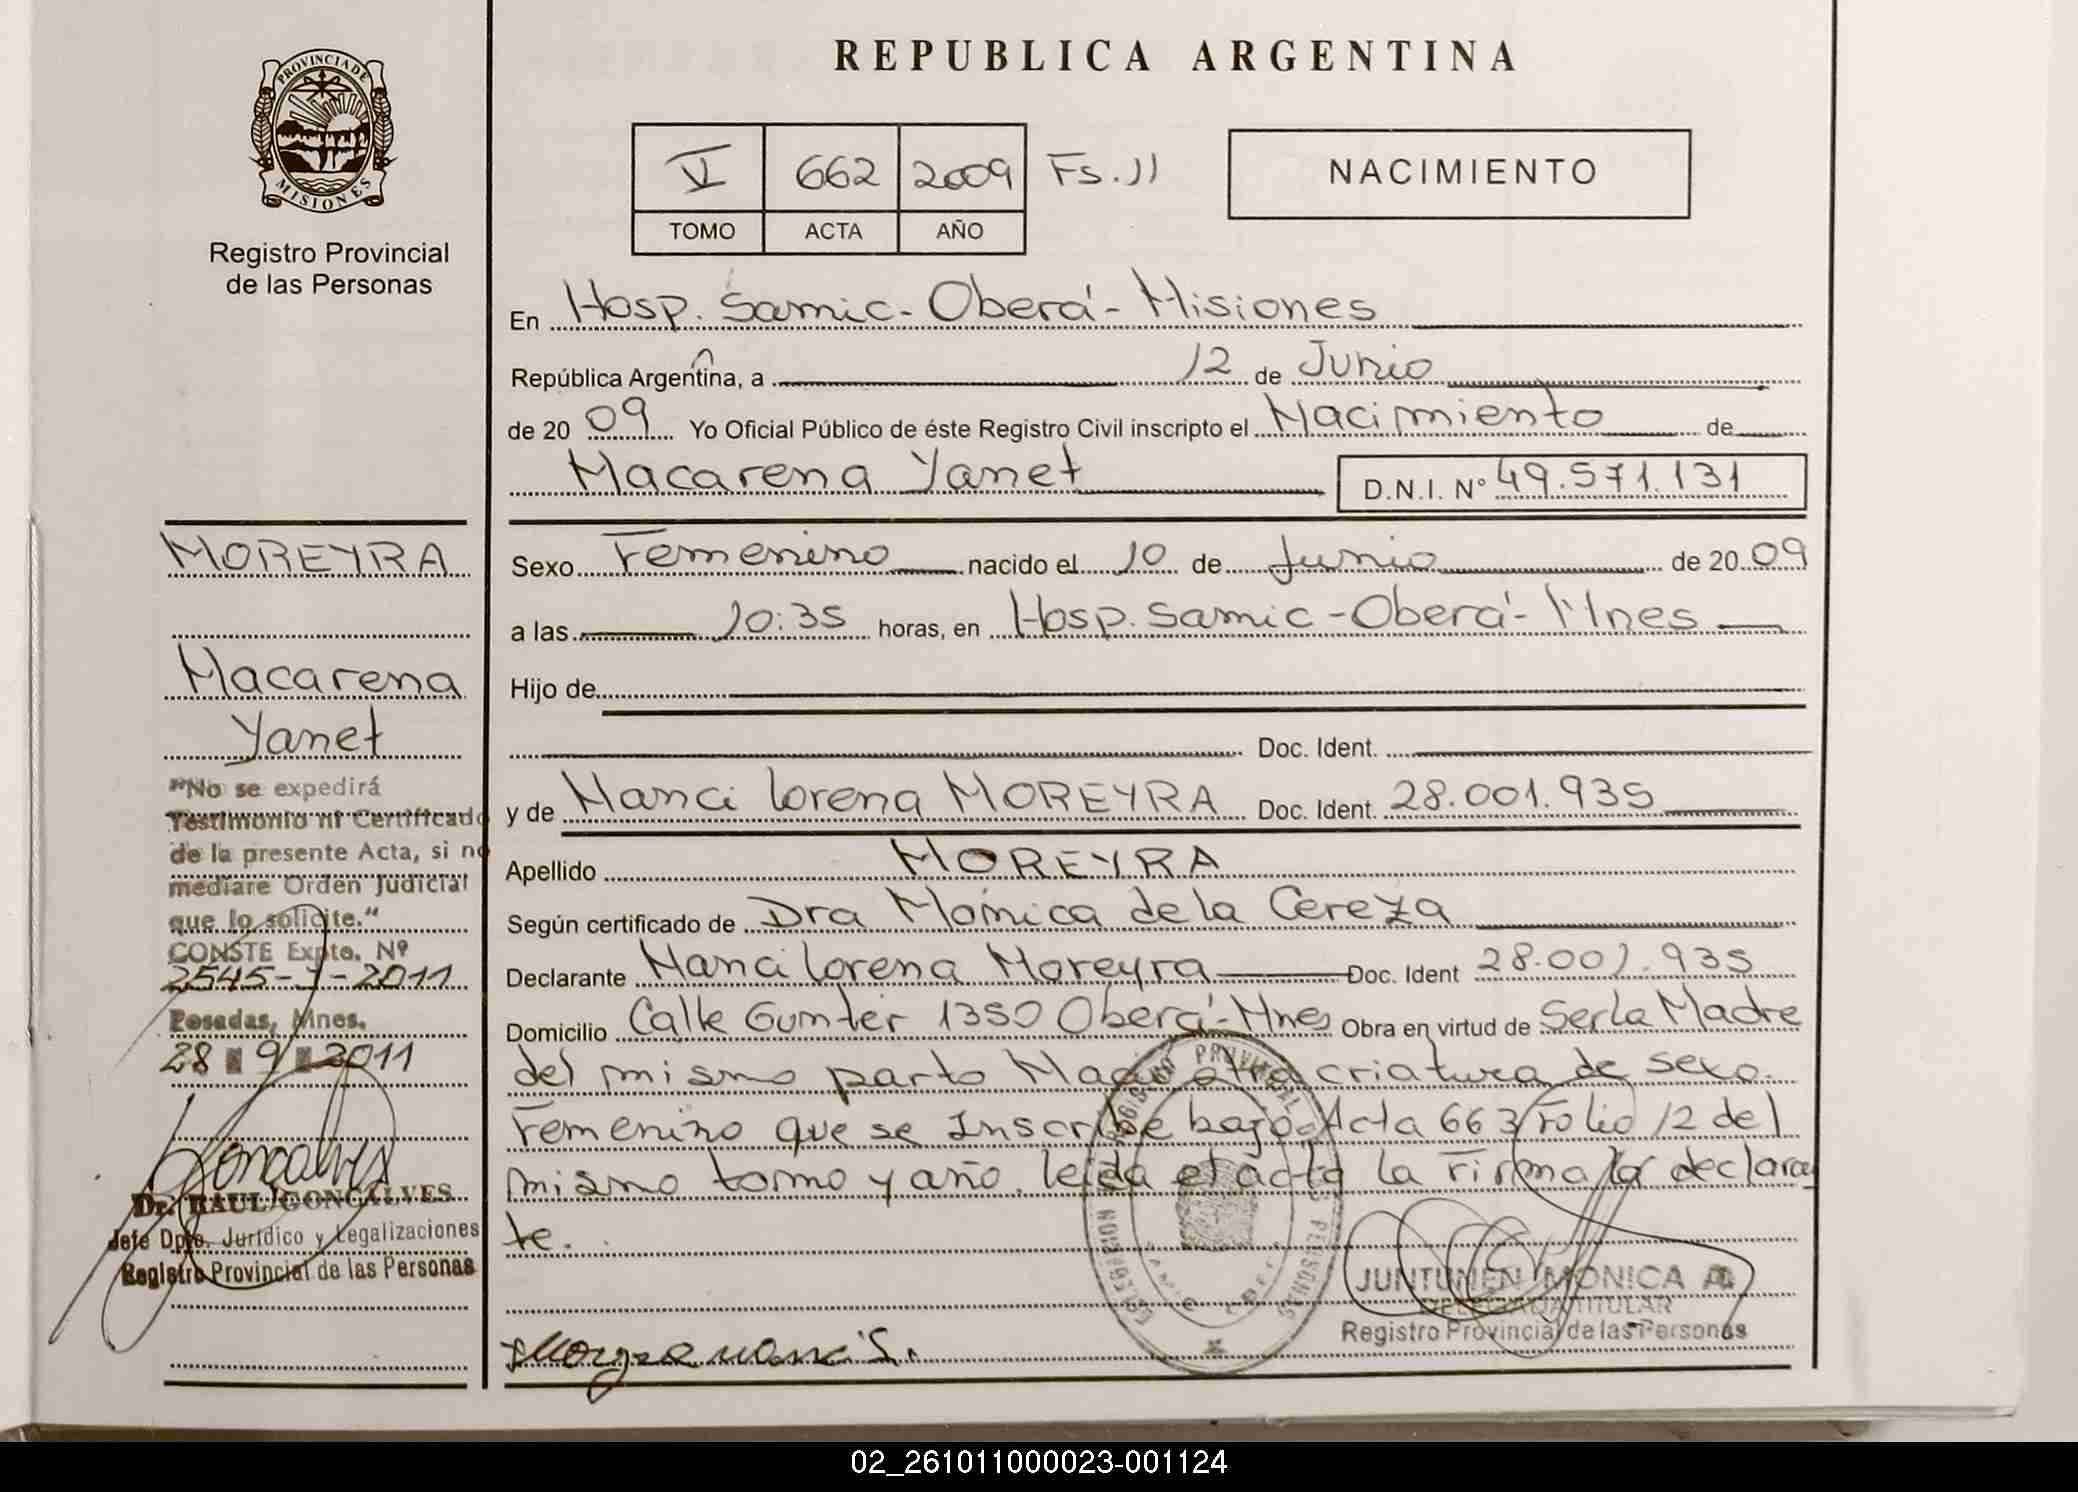 REPUBLICA ARGENTINA
PROVINCIA DE
MISIONES
Registro Provincial
de las Personas
V 662 2009 Fs. 11
TOMO ACTA AÑO
NACIMIENTO
En Hosp. Samic - Oberá - Misiones
República Argentina, a 12 de Junio
de 20 09 Yo Oficial Público de éste Registro Civil inscripto el Nacimiento de
Macarena Yanet D.N.I. N° 49.571.131
Sexo Femenino nacido el 10 de Junio de 20 09
a las 10:35 horas, en Hosp. Samic - Oberá - Mnes
Hijo de
Doc. Ident.
y de Nanci Lorena MOREYRA Doc. Ident. 28.001.935
Apellido MOREYRA
Según certificado de Dra Mónica de la Cereza
Declarante Nanci Lorena Moreyra Doc. Ident 28.001.935
Domicilio Calle Gunter 1350 Oberá - Mnes Obra en virtud de Ser la Madre
del mismo parto otra criatura de sexo
Femenino que se Inscribe bajo Acta 663 Folio 12 del
mismo tomo y año. leída el acta la Firma la declaran
te.
MOREYRA
Macarena
Yanet
"No se expedirá
Testimonio ni Certificado
de la presente Acta, si no
mediare Orden Judicial
que lo solicite."
CONSTE Expte. Nº
2545-Y-2011
Posadas, Mnes.
28 9 2011
Goncalves
Dr. RAUL GONCALVES
Jefe Dpto. Jurídico y Legalizaciones
Registro Provincial de las Personas
JUNTUNEN MONICA A.
DELEGADA TITULAR
Registro Provincial de las Personas
02_261011000023-001124